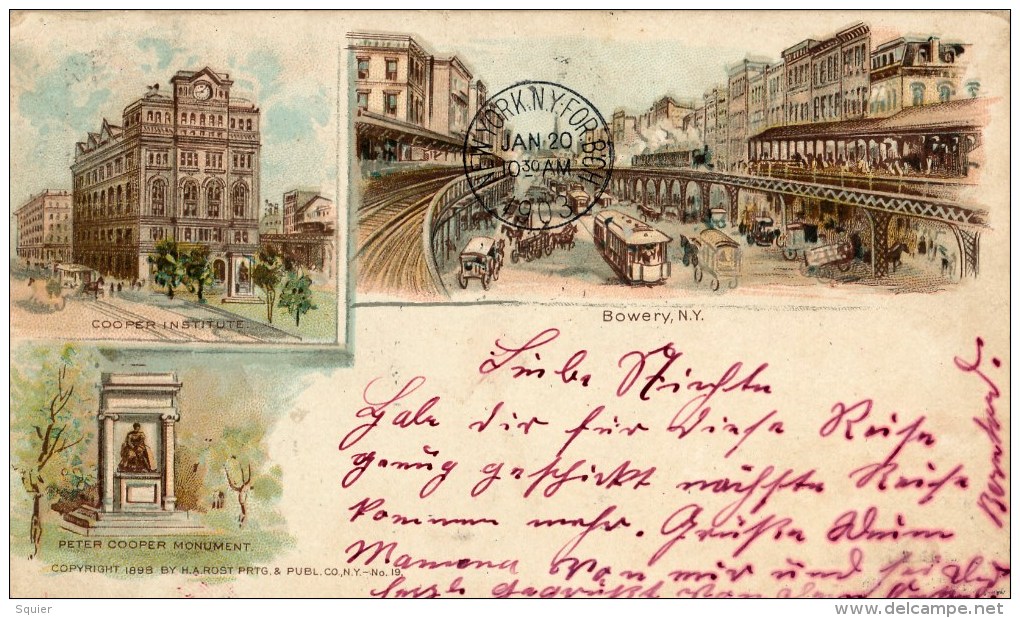 NEW YORK. N.Y. FOR. BCH
JAN 20
1030 AM
1903
COOPER INSTITUTE.
Bowery, N.Y.
PETER COOPER MONUMENT.
COPYRIGHT 1898 BY H.A. ROST PRTG. & PUBL. CO., N.Y. – No. 19.
Liebe Nichte
Habe dir für diese Reise
genug geschickt nächste Reise
kommen mehr. Grüße
Mamma von mir und sei
gegrüßt von
Squier
www.delcampe.net